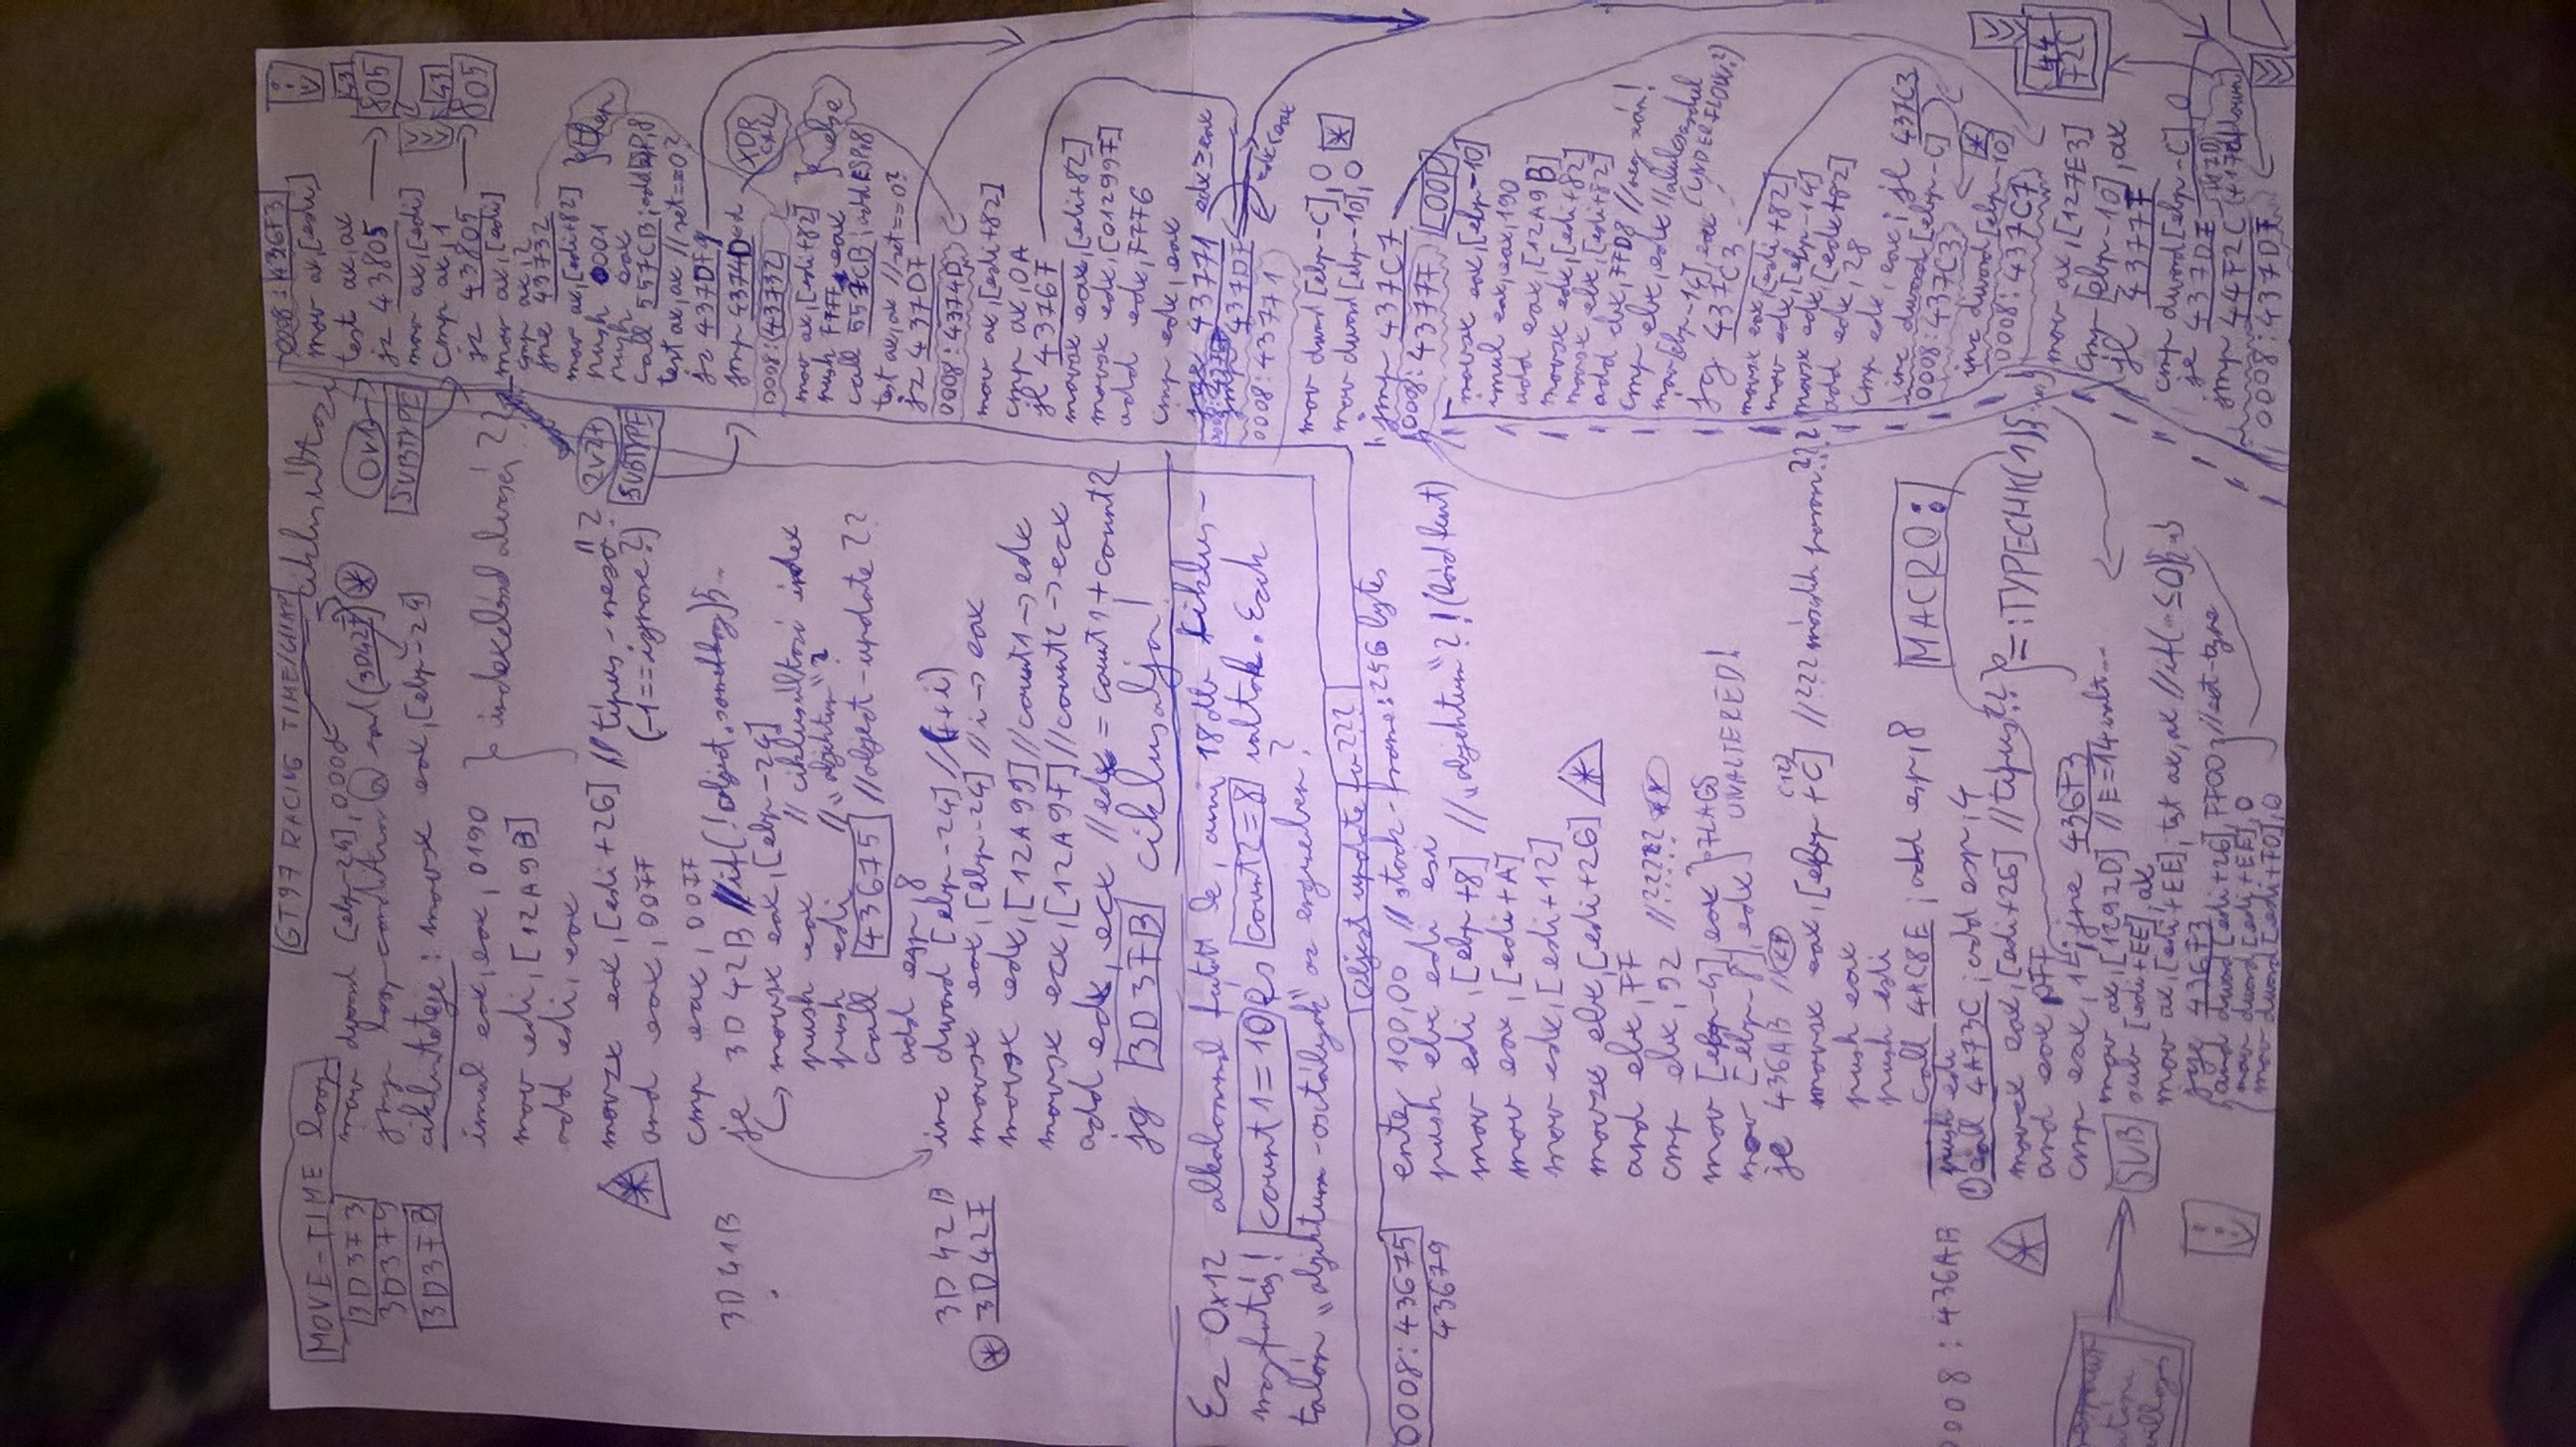 GT97 RACING TIME/CHAP
MOVE-TIME loop
ciklusváltozó
3D3F3 mov dword [ebp-24], 000d
3D3F9 jmp loop-condition and (3D42F) *
3D3FB ciklusteteje: movsx eax, [ebp-24]
imul eax, eax, 0190
mov edi, [12A9B]
add edi, eax
indexelésd alvasás ??
movzx eax, [edi+26] // típus-mező?
and eax, 00FF (-1==ignore?)
cmp eax, 00FF
3D41B je 3D42B // if(!object.something){..
movsx eax, [ebp-24]
push eax // ciklusváltozó index
push edi // „objektum"?
call 43675 // object-update ??
add esp, 8
3D42B inc dword [ebp-24] // (++i)
* 3D42F movsx eax, [ebp-24] // i -> eax
movsx edx, [12A99] // count1 -> edx
movsx ecx, [12A9F] // count2 -> ecx
add edx, ecx // edx = count1 + count2
jg 3D3FB ciklusalja!
Ez 0x12 alkalommal futott le, ami 18 db ciklus-
megfutás! count1=10 és count2=8 voltak. Ezek
talán „objektum-osztályok" az engineben?
Object update fv???
0008:43675 enter 100,00 // stack-frame: 256 bytes
43679 push ebx edi esi
mov edi, [ebp+8] // „objektum"?! (lásd fent)
mov eax, [edi+A]
mov edx, [edi+12]
movzx ebx, [edi+26] *
and ebx, FF
cmp ebx, 92 // ????? **
mov [ebp-4], eax } FLAGS
mov [ebp-8], edx } UNALTERED!
je 436AB // **
movsx eax, [ebp+C] (12) // ??? második param???
push eax
push edi
call 4AC8E ; add esp, 8
0008:436AB push edi
(!) call 4A73C ; add esp, 4
movzx eax, [edi+26] // típus??
and eax, 0FF
cmp eax, 1 ; jne 436F3
MACRO:
=:TYPECHK(1){
SUB mov ax, [1292D] // E=14 volt...
sub [edi+EE], ax
mov ax, [edi+EE], test ax, ax // if(..≤0){
jge 436F3
and dword [edi+26], FF00 // set-type
mov dword [edi+EE], 0
mov dword [edi+F0], 0
0008:436F3
mov ax, [edi]
test ax, ax
0v1
SUBTYPE
jz 43805 -> 43 805
mov ax, [edi]
cmp ax, 1
jz 43805 -> 43 805
mov ax, [edi]
cmp ax, 2
jne 43732
2v2+
SUBTYPE
mov ax, [edi+82] } then
push 0001
push eax
call 557CB ; add ESP, 8
test ax, ax // ret==0?
jz 437DF
jmp 4374D
XOR CALL
0008:43732
mov ax, [edi+82] } else
push FFFF, eax
call 557CB ; add ESP, 8
test ax, ax // ret==0?
jz 437DF
0008:4374D
mov ax, [edi+82]
cmp ax, 0A
jl 4376F
movsx eax, [edi+82]
movsx edx, [01299F]
add edx, FFF6
cmp edx, eax
jge 43771 edx≥eax
jmp 437DF edx<eax
0008:43771
mov dword [ebp-C], 0
mov dword [ebp-10], 0 *
jmp 437C7
0008:4377F LOOP
movsx eax, [ebp-10]
imul eax, eax, 190
add eax, [12A9B]
movsx edx, [edi+82]
movsx ebx, [edi+82]
add ebx, FFD8 // neg szám!
cmp ebx, edx // alulcsordul
mov [ebp-14], eax (UNDERFLOW?)
jg 437C3
movsx eax, [edi+82]
mov edx, [ebp-14]
movsx edx, [edx+82]
add edx, 28
cmp edx, eax ; jl 437C3
inc dword [ebp-C]
0008:437C3
inc dword [ebp-10] *
0008:437C7
mov ax, [127E3]
cmp [ebp-10], ax
jl 4377F
cmp dword [ebp-C], 0
je 437DF
jmp 44F2C
0008:437DF
44
F2C